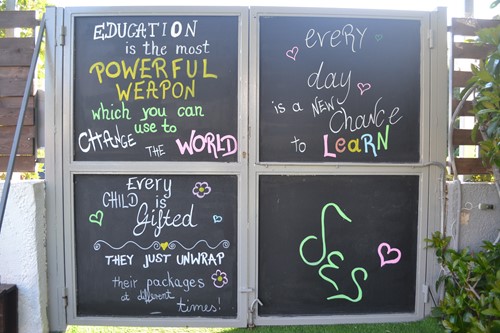 EDUCATION
is the most
POWERFUL
WEAPON
which you can
use to
CHANGE THE WORLD
every
day
is a NEW
Chance
to LEARN
Every
CHILD is
Gifted
THEY JUST UNWRAP
their packages
at different
times!